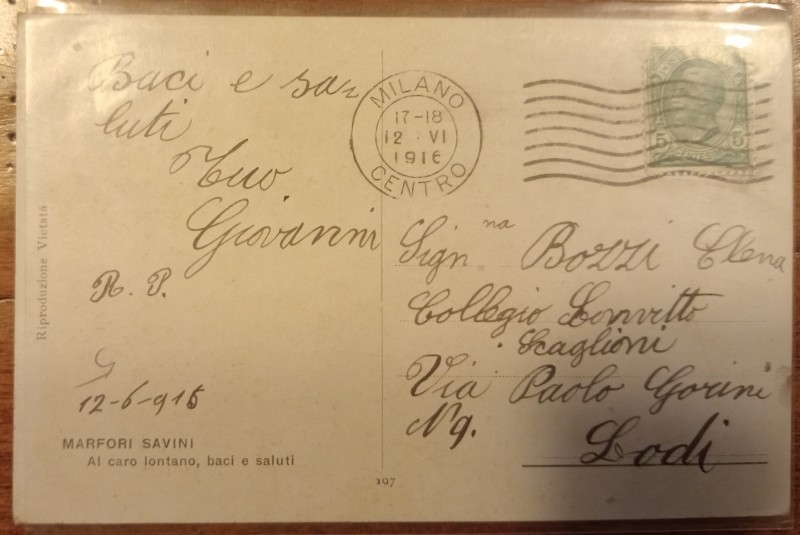 Baci e sa=
luti
Tuo
Giovanni
R. P.
12-6-916
MARFORI SAVINI
Al caro lontano, baci e saluti
Riproduzione Vietata
197
MILANO
17-18
12 · VI
1916
CENTRO
5 5
Sign.na Bozzi Elena
Collegio Convitto
Scaglioni
Via Paolo Gorini
N 9.
Lodi